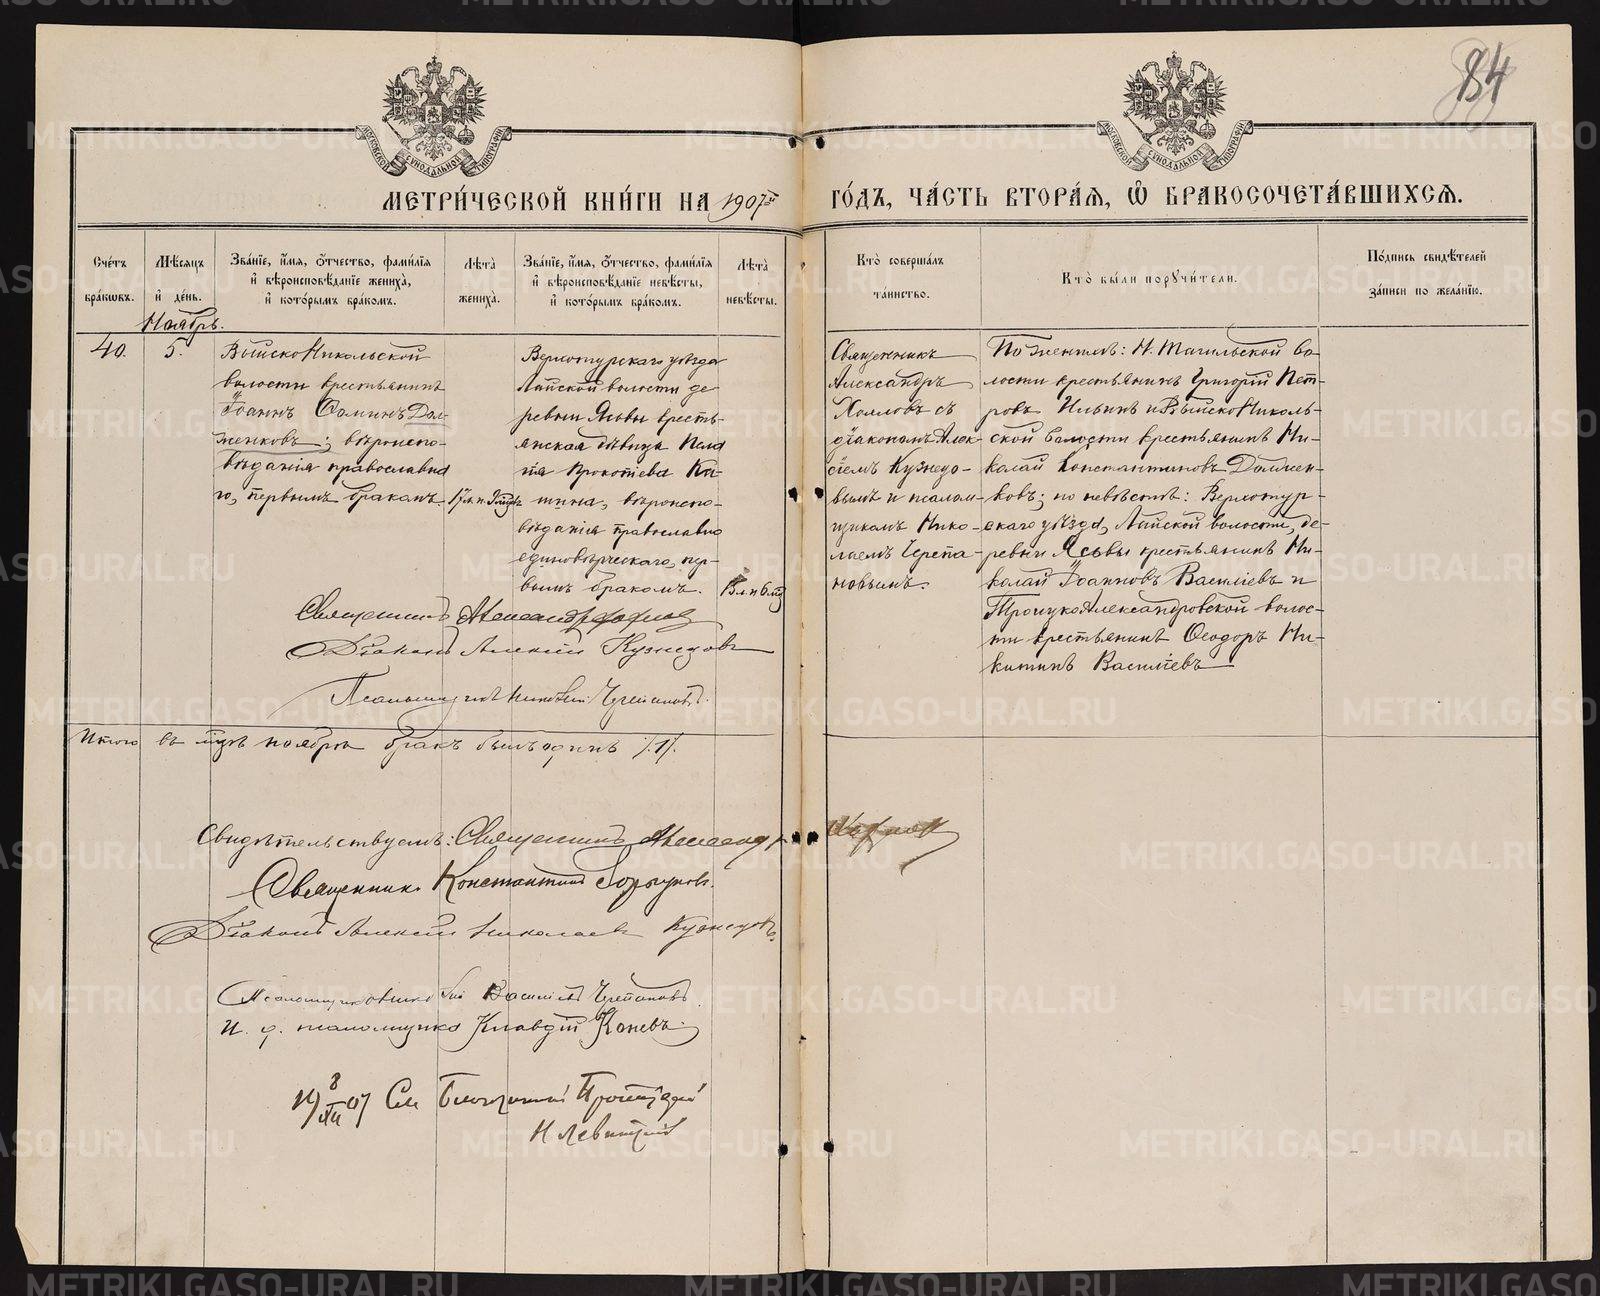 84
МОСКОВСКОЙ СѴНОДАЛЬНОЙ ТИПОГРАФІИ
МОСКОВСКОЙ СѴНОДАЛЬНОЙ ТИПОГРАФІИ
МЕТРИ́ЧЕСКОЙ КНИ́ГИ НА 1907й
ГО́ДЪ, ЧА́СТЬ ВТОРА́Я, Ѡ҆ БРАКОСОЧЕТА́ВШИХСѦ.
Сче́тъ
бра́кѡвъ.
Мѣ́сѧцъ
и҆ де́нь.
Зва́нїе, и҆́мѧ, ѻ҆́тчество, фами́лїѧ
и҆ вѣроисповѣ́данїе жениха̀,
и҆ кото́рымъ бра́комъ.
Лѣта̀
жениха̀.
Зва́нїе, и҆́мѧ, ѻ҆́тчество, фами́лїѧ
и҆ вѣроисповѣ́данїе невѣ́сты,
и҆ кото́рымъ бра́комъ.
Лѣта̀
невѣ́сты.
Кто̀ соверша́лъ
та́инство.
Кто̀ бы́ли порꙋчи́тели.
По́дпись свидѣ́телей
за́писи по жела́нїю.
Ноябрь.
40.
5.
Выйско Никольской
волости крестьянинъ
Іоаннъ Ѳоминъ Дол-
женковъ; вѣроиспо-
вѣданія православна
го, первымъ бракомъ.
Верхотурскаго уѣзда
Лайской волости де
ревни Ясьвы кресть-
янская дѣвица Пела
гія Прокопіева Ка-
вѣроиспо-
вѣданія православно
единовѣрческаго, пер-
вымъ бракомъ.
Священникъ
Александръ
Хохловъ съ
діакономъ Алек-
сіемъ Кузнецо-
вымъ и псалом-
щикомъ Нико-
лаемъ Черепа-
новымъ.
По женихѣ: Н. Тагильской во
лости крестьянинъ Григорій Пет-
ровъ Ильинъ и Выйско Николь-
ской волости крестьянинъ Ни-
колай Константиновъ Должен-
ковъ; по невѣстѣ: Верхотур-
скаго уѣзда, Лайской волости, де-
ревни Ясьвы крестьянинъ Ни-
колай Іоанновъ Василіевъ и
Троицко Александровской волос-
ти крестьянинъ Ѳеодоръ Ни-
китинъ Василіевъ
Священникъ Александръ Хохловъ
Діаконъ Алексій Кузнецовъ
Псаломщикъ Николай Черепановъ.
Итого въ м-цѣ ноябрѣ бракъ былъ одинъ /1/.
Свидѣтельствуемъ: Священникъ Александръ Хохловъ
Священникъ Константинъ
Діаконъ Алексій Николаевъ Кузнецовъ.
Псаломщикъ Николай Василіевъ Черепановъ.
И. д. псаломщика Клавдій Коневъ.
19 8/XII 07 См. Благочинный Протоіерей
Н Левитскій
METRIKI.GASO-URAL.RU